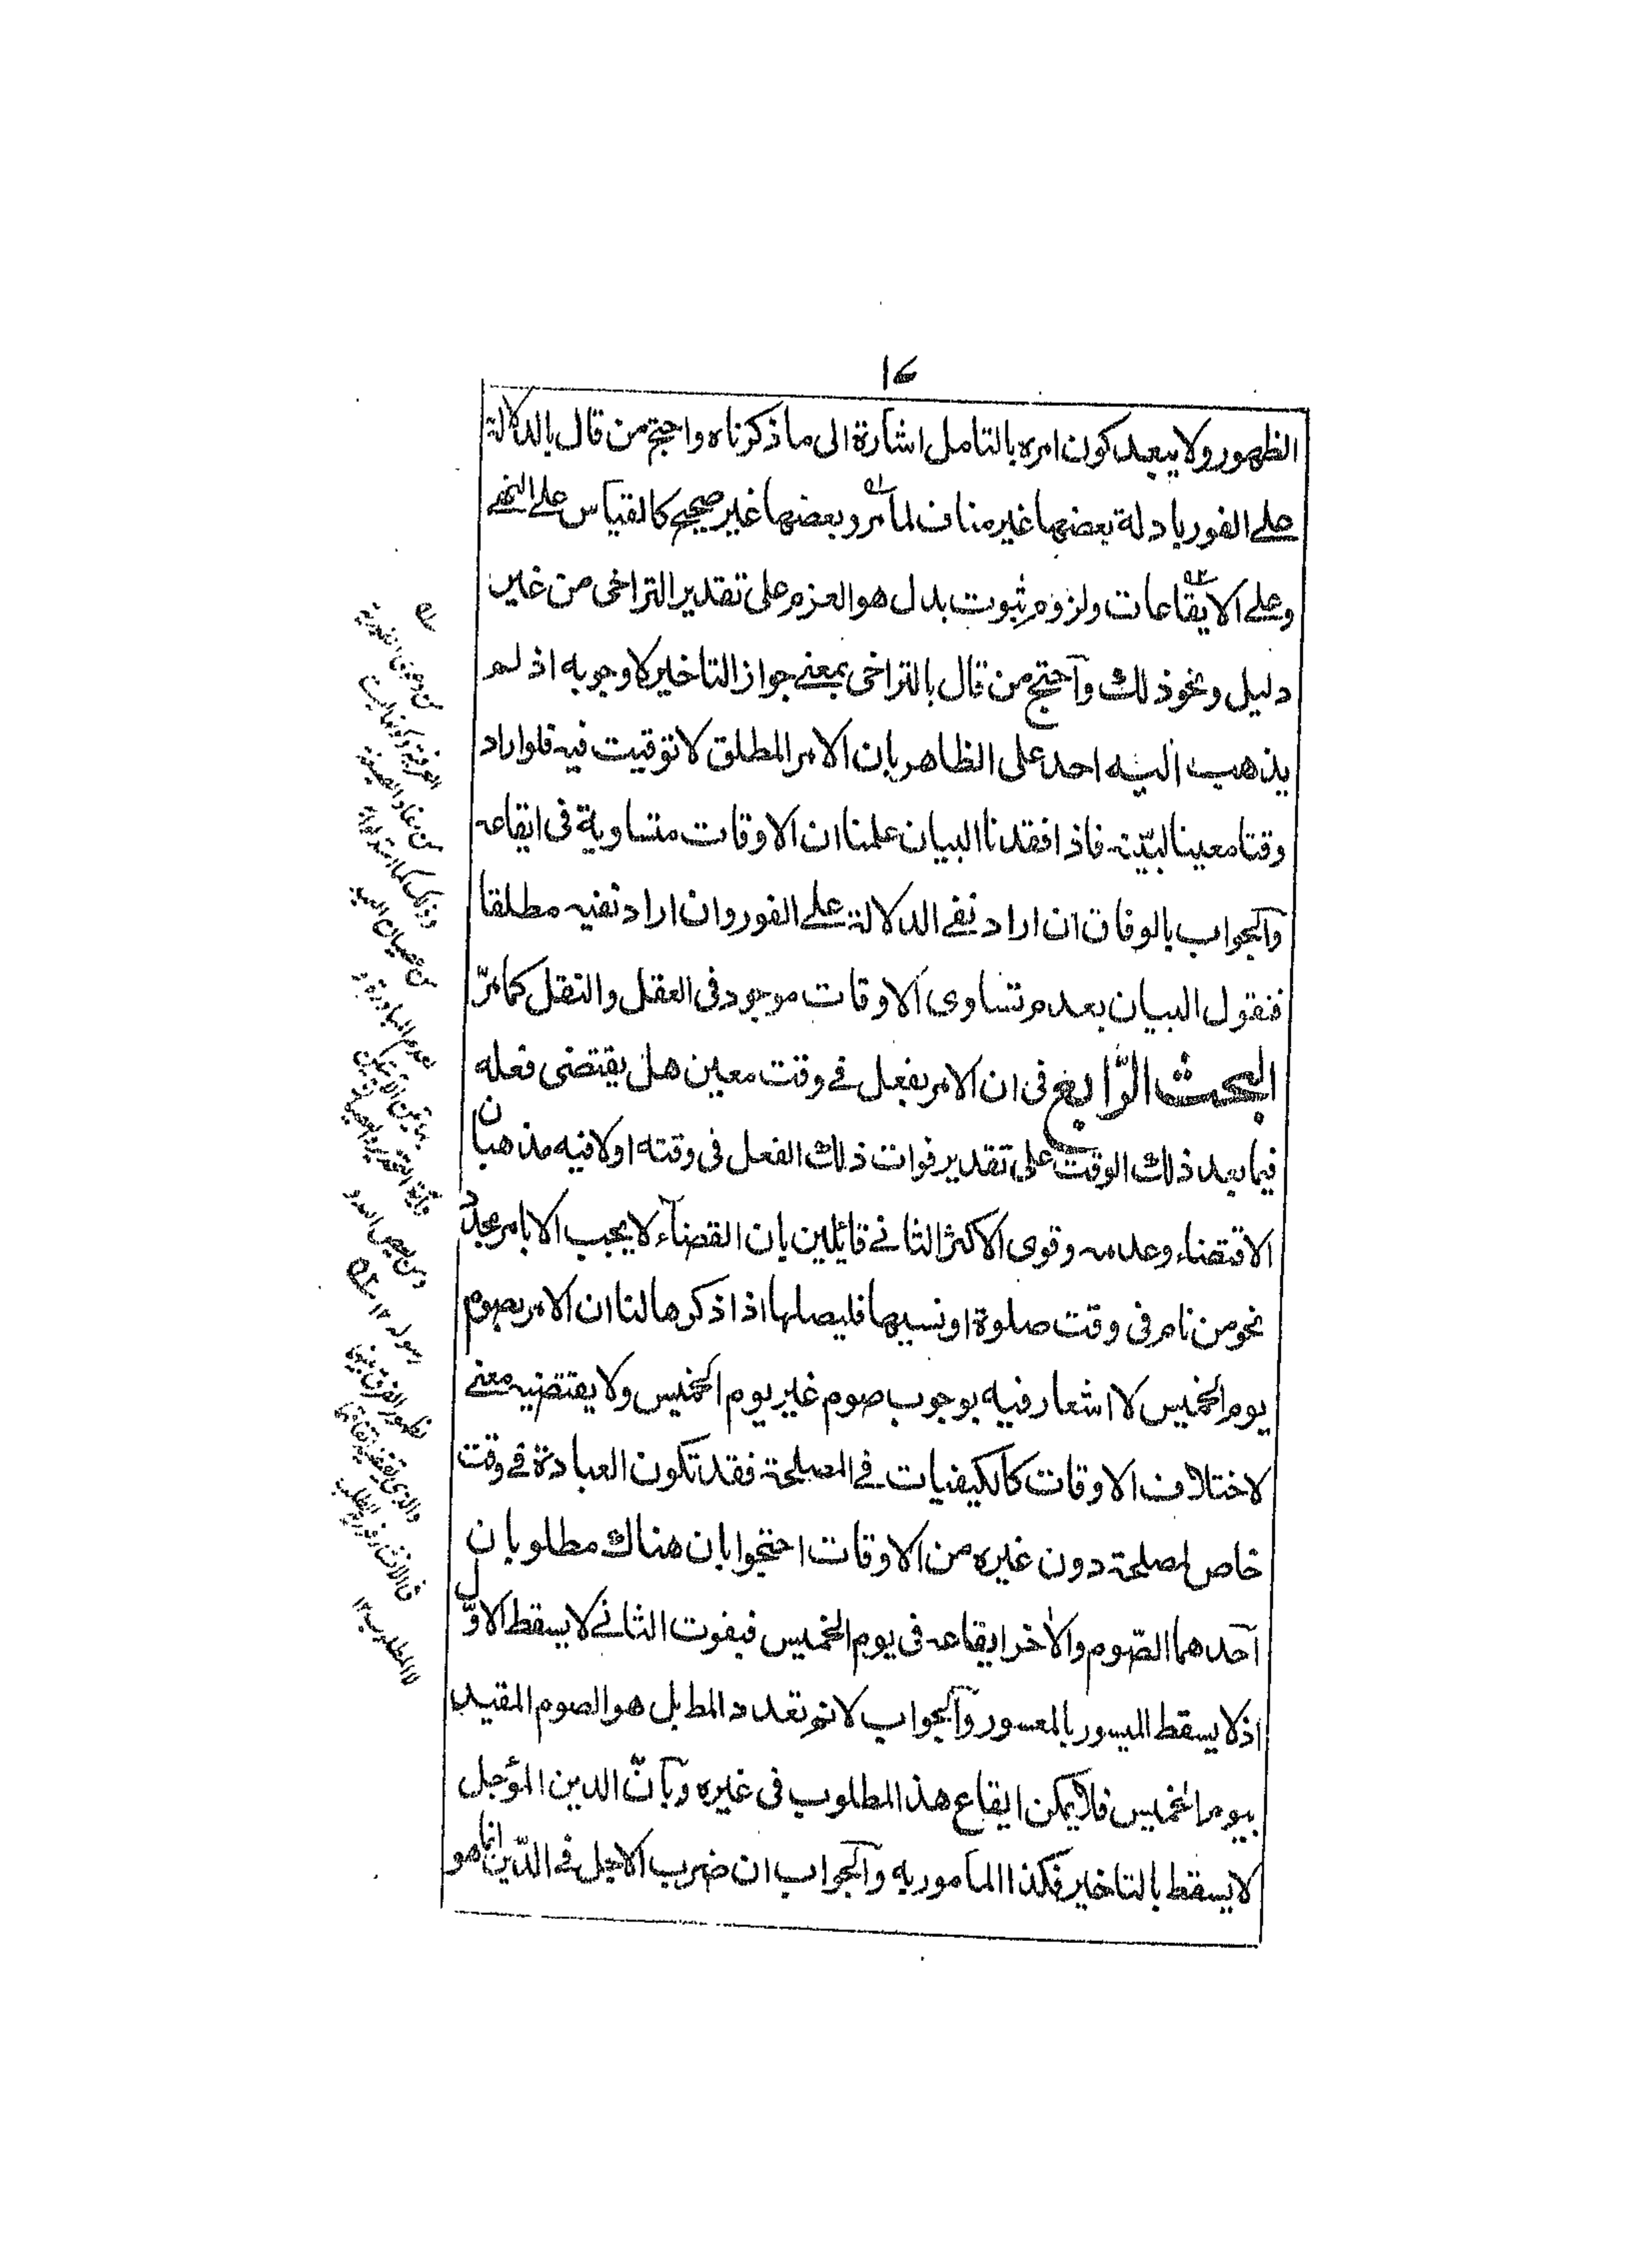 ١٧
الظهور ولا يبعد كون امره بالتامل اشارة الى ما ذكرناه واحتج من قال بالدلالة
على الفور بادلة بعضها غير مناف لما مر وبعضها غير صحيح كالقياس على النهي
وعلى الايقاعات ولزوم ثبوت بدل هو العزم على تقدير التراخى من غير
دليل ونحو ذلك وآحتج من قال بالتراخى بمعنى جواز التاخير لا وجوبه اذ لم
يذهب اليه احد على الظاهر بان الامر المطلق لا توقيت فيه فلو اراد
وقتا معينا لبيّنه فاذا فقدنا البيان علمنا ان الاوقات متساوية فى ايقاعه
وآلجواب بالوفاق ان اراد نفى الدلالة على الفور وان اراد نفيه مطلقا
فنقول البيان بعدم تساوى الاوقات موجود فى العقل والنقل كما مرّ
البحث الرّابع فى ان الامر بفعل فى وقت معين هل يقتضى فعله
فيما بعد ذلك الوقت على تقدير فوات ذلك الفعل فى وقته اولا فيه مذهبان
الاقتضاء وعدمه وقوى الاكثر الثانى قائلين بان القضآء لا يجب الا بامر مجدد
نحو من نام فى وقت صلوة او نسيها فليصلها اذا ذكرها لنا ان الامر بصوم
يوم الخميس لا اشعار فيه بوجوب صوم غير يوم الخميس ولا يقتضيه معنى
لاختلاف الاوقات كالكيفيات فى المصلحة فقد تكون العبادة فى وقت
خاص لمصلحة دون غيره من الاوقات احتجوا بان هناك مطلوبان
آحدهما الصّوم والاخر ايقاعه فى يوم الخميس فبفوت الثانى لا يسقط الاوّل
اذ لا يسقط الميسور بالمعسور وآلجواب لانم تعدد المط بل هو الصوم المقيد
بيوم الخميس فلا يمكن ايقاع هذا المطلوب فى غيره وبآنّ الدين المؤجل
لا يسقط بالتاخير فكذا المامور به وآلجواب ان ضرب الاجل فى الدّين انما هو